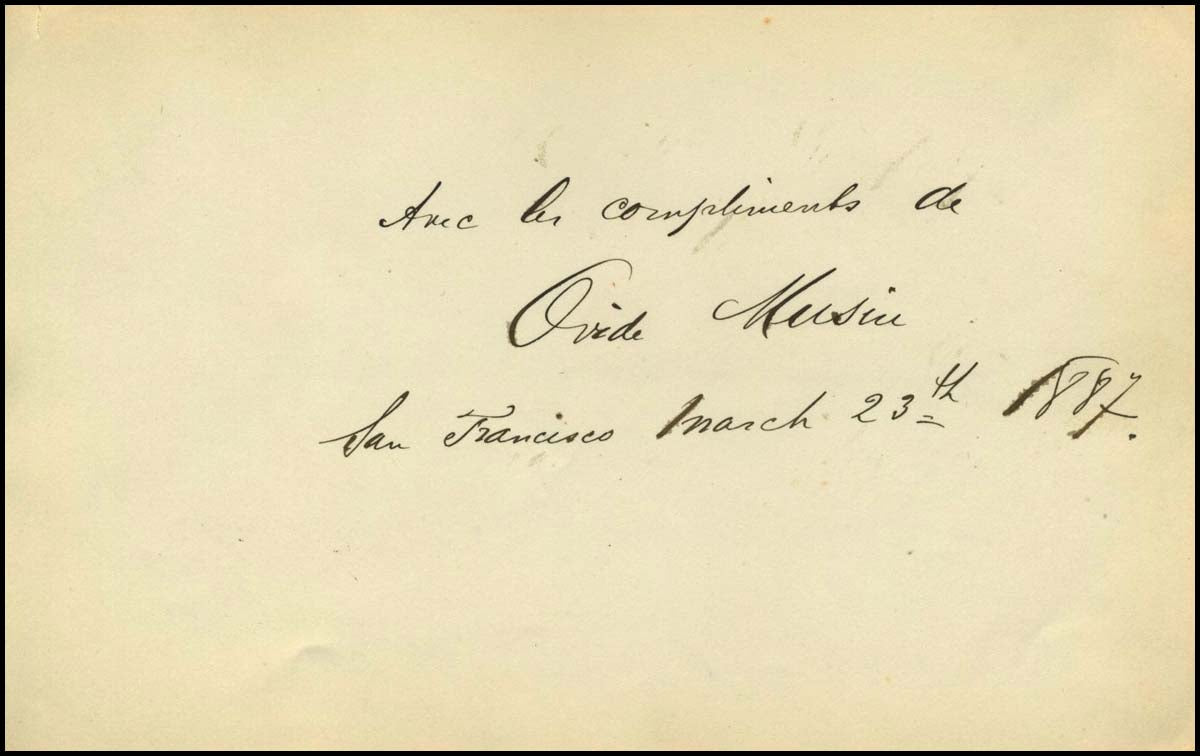 Avec les compliments de
Ovide Musin
San Francisco March 23th 1887.